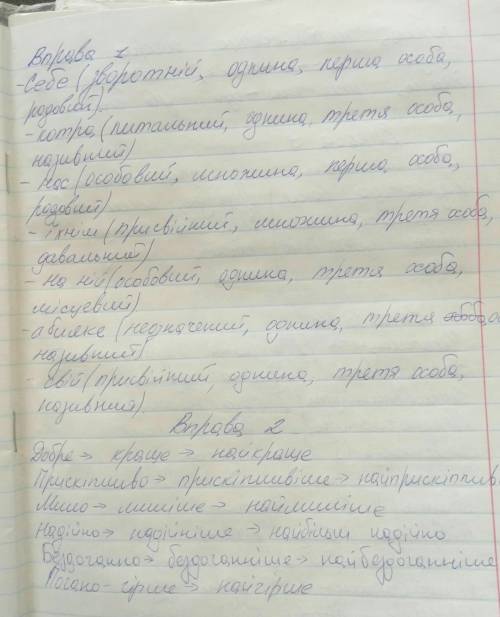 Вправа 1
-Себе (зворотній, однина, перша особа,
родовий).
- котра (питальний, однина, третя особа,
називний)
- Нас (особовий, множина, перша особа,
родовий)
- їхнім (присвійний, множина, третя особа,
давальний)
- на ній (особовий, однина, третя особа,
місцевий)
-абияке (незначений, однина, третя
називний)
- свій (присвійний, однина, третя особа,
називний).
Вправа 2
Добре → краще → найкраще
Прискіпливо → прискіпливіше → найприскіпливі
Мило → миліше → наймиліше
Надійно → надійніше → найбільш надійно
Бездоганно → бездоганніше → найбездоганніше
Погано - гірше → найгірше